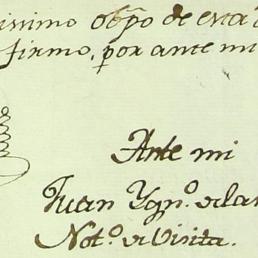 issimo obpo de esta
firmo, por ante mi
Ante mi
Juan Ygn.o de la
Not.o de Visita.